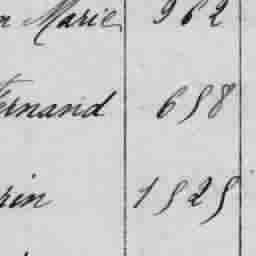 n Marie 962
ernand 658
rin 1525